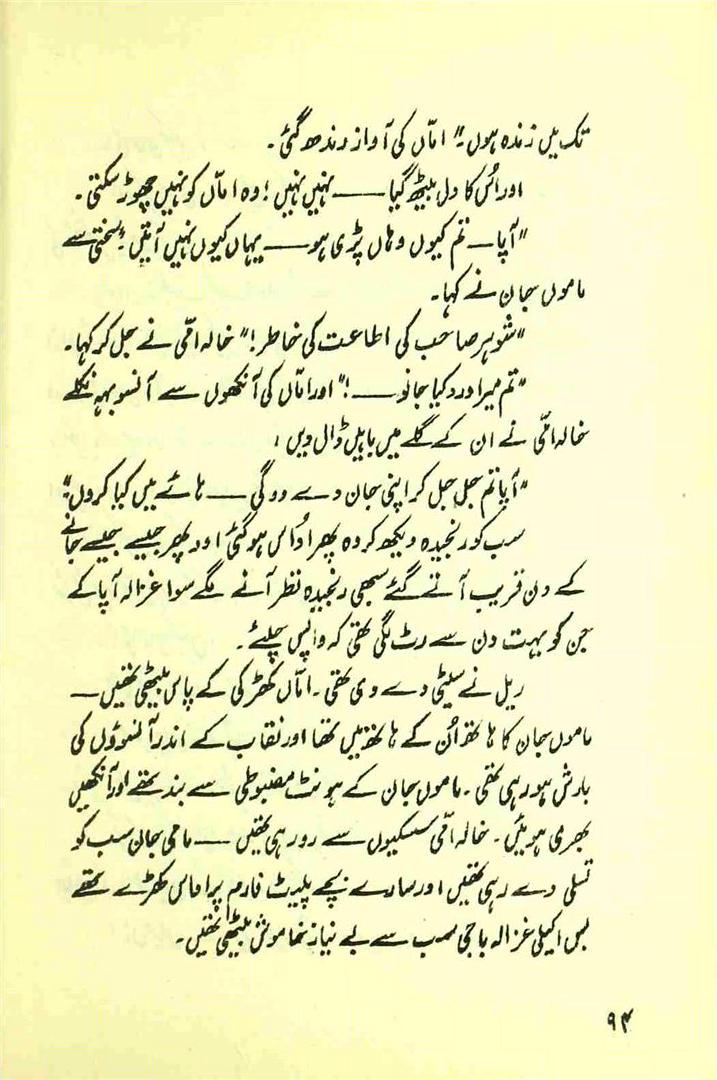 تک میں زندہ ہوں۔" اماّں کی آواز رندھ گئی۔
اور اُس کا دل بیٹھ گیا —— نہیں نہیں! وہ اماّں کو نہیں چھوڑ سکتی۔
"آپا — تم کیوں وہاں پڑی ہو —— یہاں کیوں نہیں آتیں" سختی سے
ماموں جان نے کہا۔
"شوہر صاحب کی اطاعت کی خاطر!" خالہ امّی نے جل کر کہا۔
"تم میرا درد کیا جانو ——!" اور اماّں کی آنکھوں سے آنسو بہہ نکلے
خالہ امّی نے ان کے گلے میں باہیں ڈال دیں ؛
"آپا تم جل جل کر اپنی جان دے دو گی —— ہائے میں کیا کروں"
سب کو رنجیدہ دیکھ کر وہ پھر اُداس ہو گئی اور پھر جیسے جیسے جانے
کے دن قریب آتے گئے سبھی رنجیدہ نظر آنے لگے سوا غزالہ آپا کے
جن کو بہت دن سے رٹ لگی تھی کہ واپس چلیئے۔
ریل نے سیٹی دے دی تھی۔ اماّں کھڑکی کے پاس بیٹھی تھیں —
ماموں جان کا ہاتھ اُن کے ہاتھ میں تھا اور نقاب کے اندر آنسوؤں کی
بارش ہو رہی تھی۔ ماموں جان کے ہونٹ مضبوطی سے بند تھے اور آنکھیں
بھری ہوئیں۔ خالہ امّی سسکیوں سے رو رہی تھیں —— مامی جان سب کو
تسلی دے رہی تھیں اور سارے بچے پلیٹ فارم پر اداس کھڑے تھے
بس اکیلی غزالہ باجی سب سے بے نیاز خاموش بیٹھی تھیں۔
۹۴